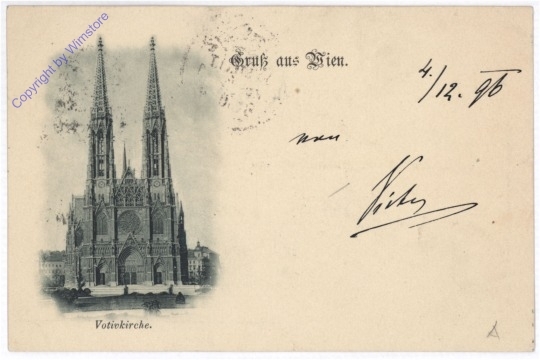 Copyright by Wimstore
Gruß aus Wien.
4./12. 96
von
Votivkirche.